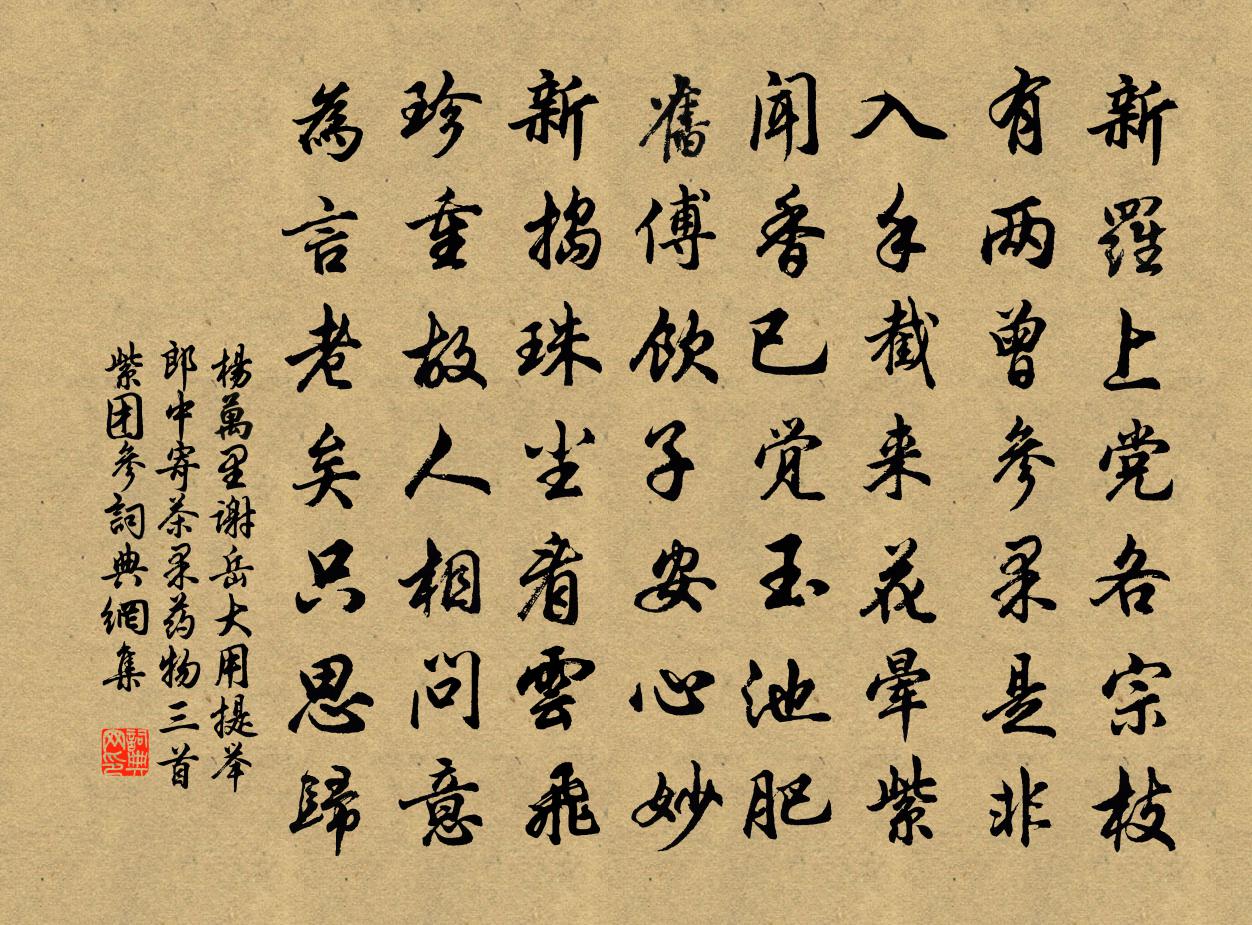 新羅上党各宗枝
有两曾參果是非
入手截来花暈紫
聞香已觉玉池肥
舊傅飲子安心妙
新搗珠塵看雲飛
珍重故人相問意
為言老矣只思歸
楊萬里谢岳大用提举
郎中寄茶果药物三首
紫团參詞典網集
詞典网印